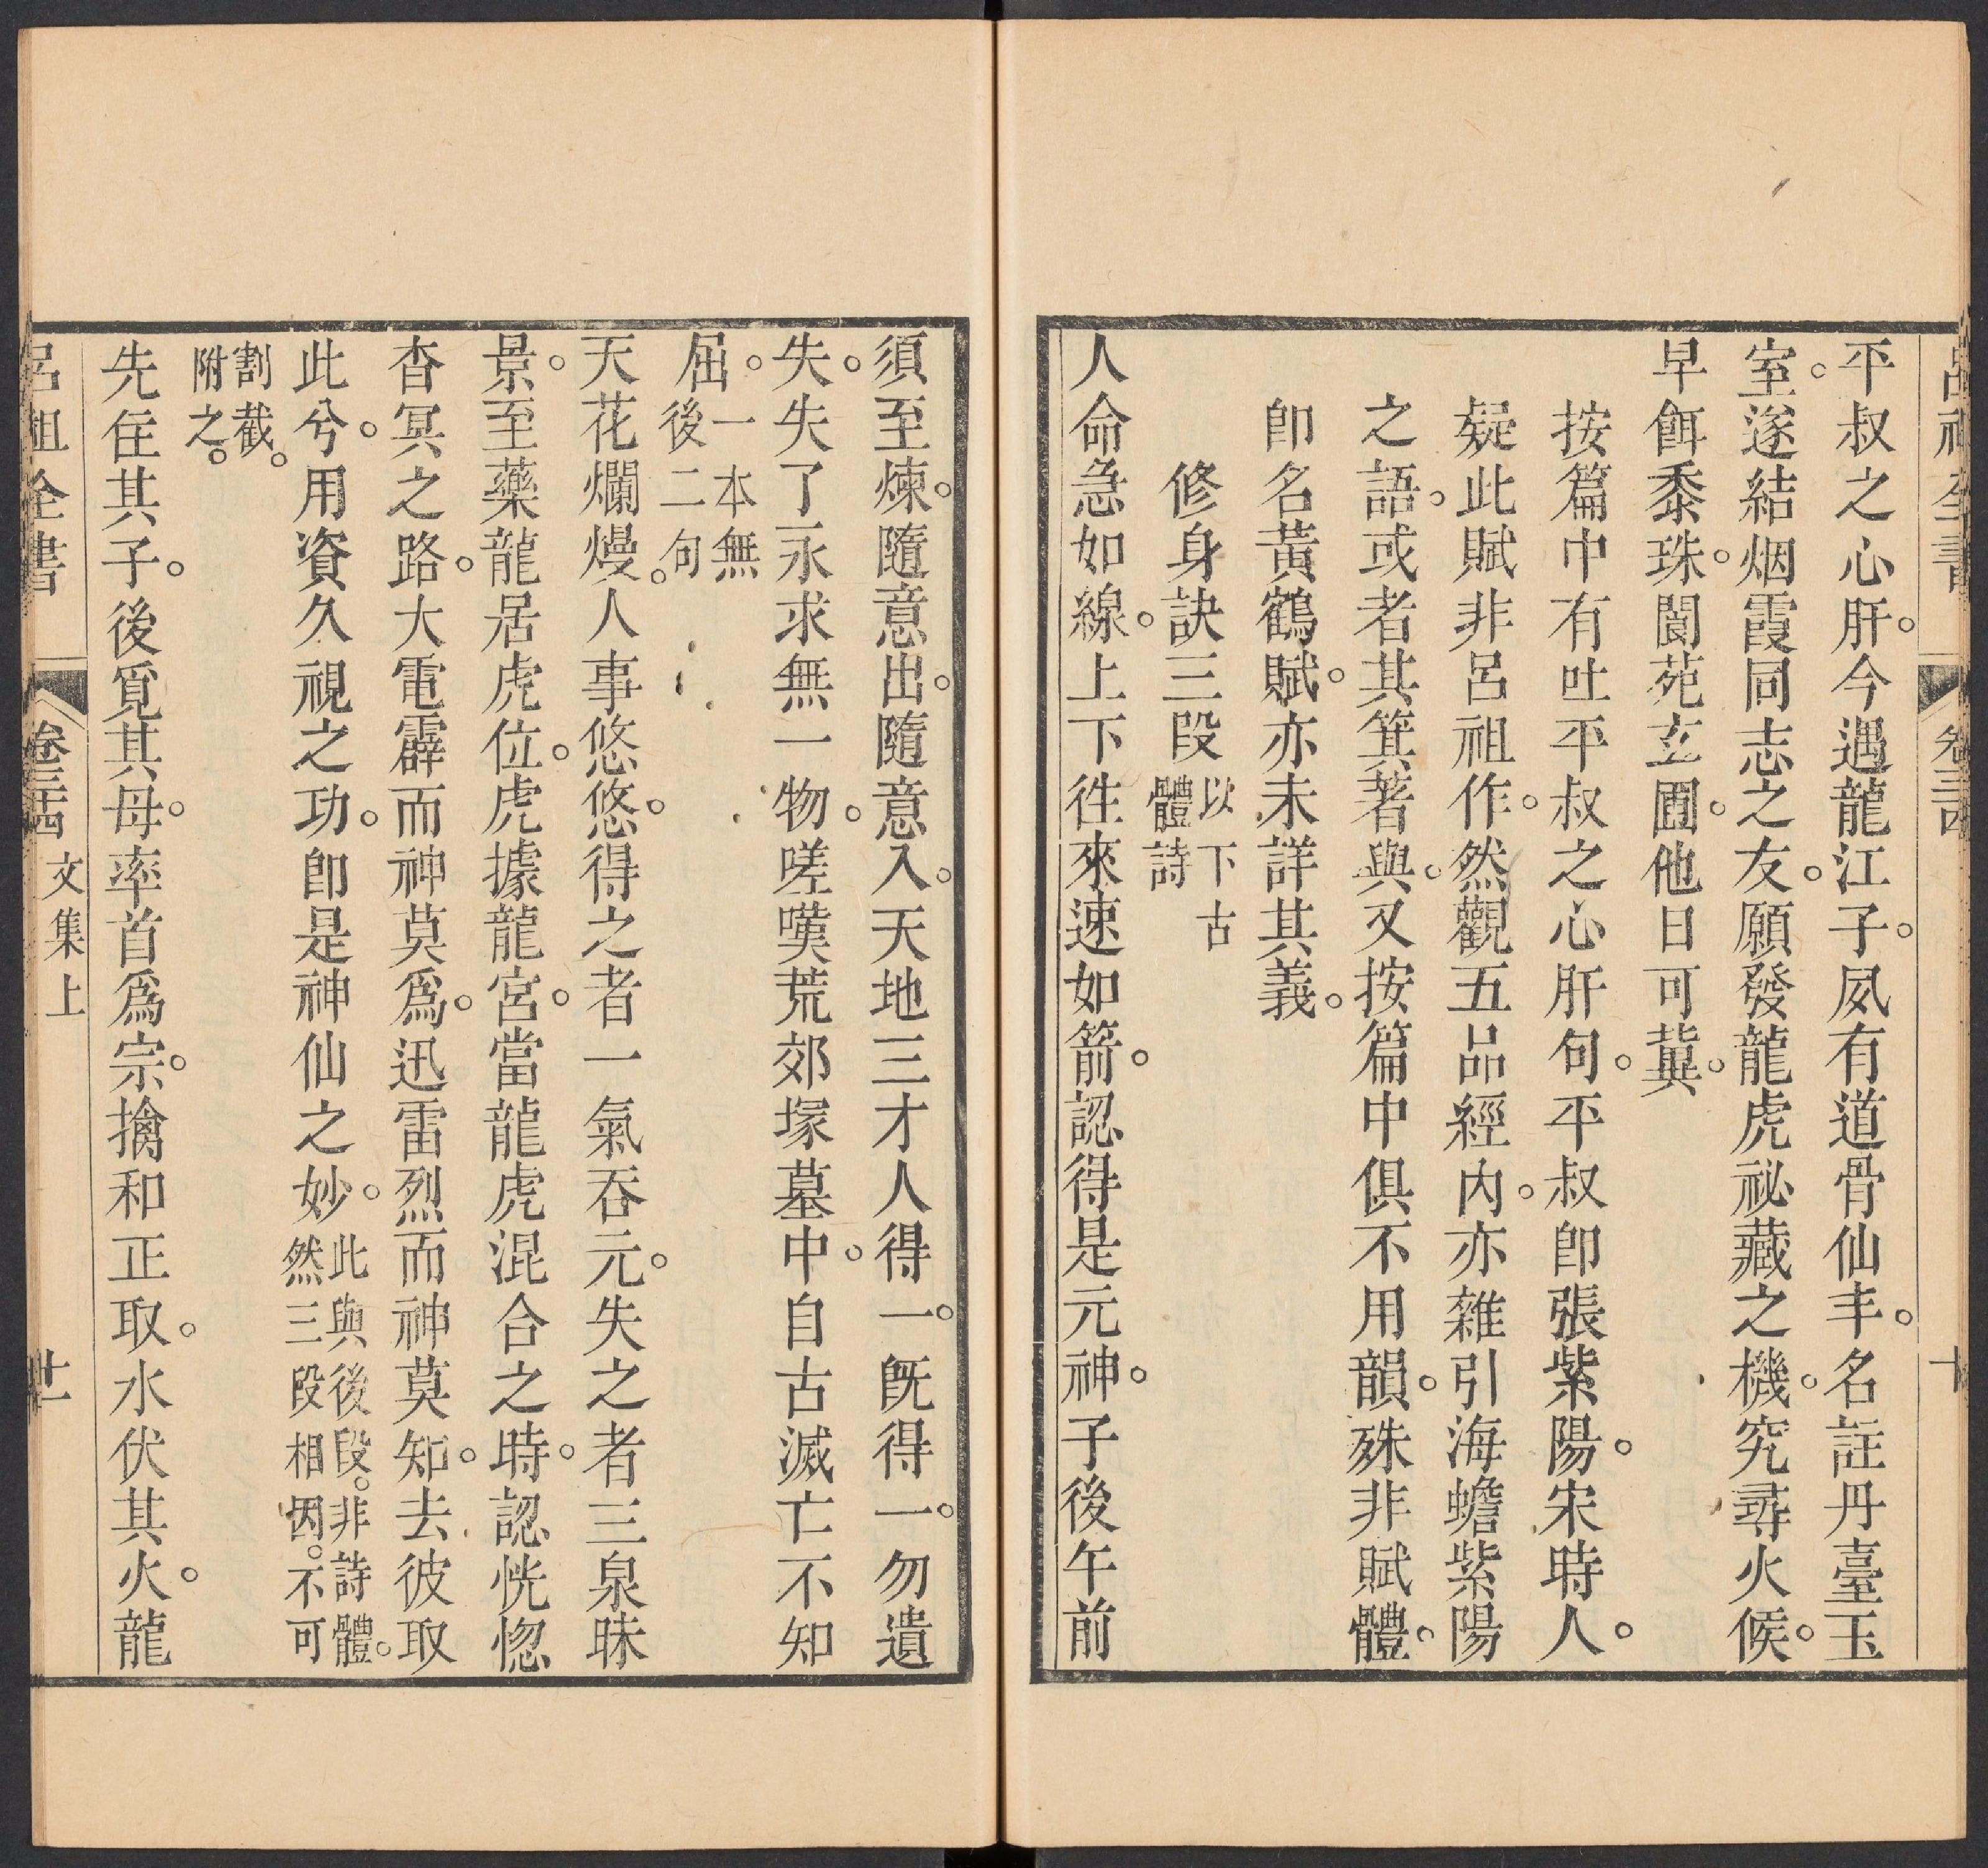 呂祖全書 卷三十四 十
平叔之心肝。今遇龍江子。夙有道骨仙丰。名註丹臺玉
室。遂結烟霞同志之友。願發龍虎祕藏之機。究尋火候。
早餌黍珠。閬苑玄圃。他日可冀。
按篇中有吐平叔之心肝句。平叔卽張紫陽。宋時人。
疑此賦非呂祖作。然觀五品經內。亦雜引海蟾紫陽
之語。或者其箕著與。又按篇中俱不用韻。殊非賦體。
卽名黃鶴賦。亦未詳其義。
修身訣三段
以下古
體詩
人命急如線。上下徃來速如箭。認得是元神。子後午前
須至煉。隨意出。隨意入。天地三才人得一。旣得一。勿遺
失。失了永求無一物。嗟嘆荒郊塚墓中。自古滅亡不知
屈。
一本無
後二句
天花爛熳。人事悠悠。得之者一氣吞元。失之者三泉昧
景。至藥龍居虎位。虎據龍宮。當龍虎混合之時。認恍惚
杳冥之路。大電霹而神莫爲。迅雷烈而神莫知。去彼取
此兮。用資久視之功。卽是神仙之妙。
此與後段。非詩體。
然三段相因。不可
割截。
附之。
先住其子。後覓其母。率首爲宗。擒和正取。水伏其火。龍
呂祖全書 卷三十四 文集上 十一